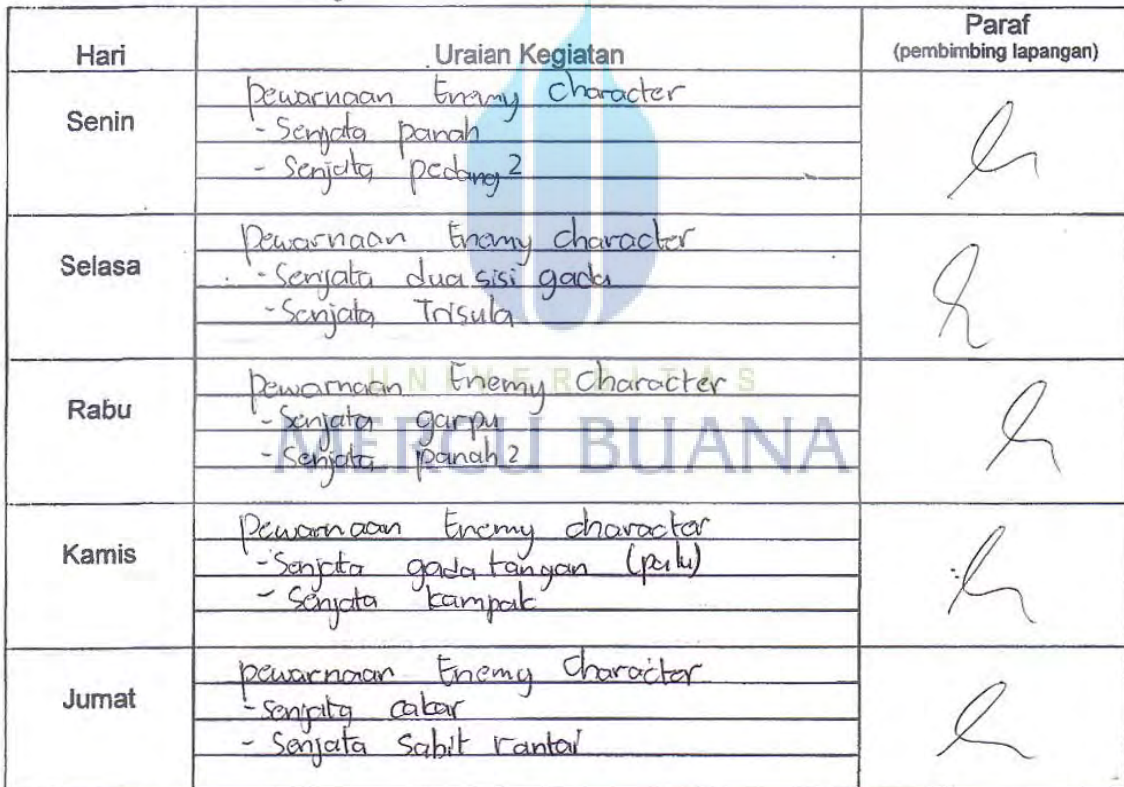 Hari Uraian Kegiatan Paraf
(pembimbing lapangan)
Senin
pewarnaan Enemy Character
- Senjata panah
- Senjata pedang 2
Selasa
Pewarnaan Enemy character
- Senjata dua sisi gada
- Senjata Trisula
Rabu
pewarnaan Enemy Character
- Senjata garpu
- Senjata panah 2
UNIVERSITAS
MERCU BUANA
Kamis
Pewarnaan Enemy character
- Senjata gada tangan (palu)
- Senjata kampak
Jumat
pewarnaan Enemy Character
- Senjata cakar
- Senjata Sabit rantai